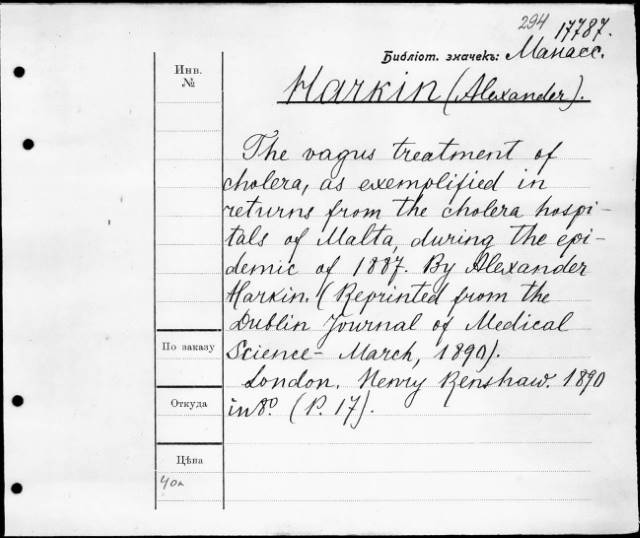 294 17787.
Библіот. значекъ: Манасс.
Инв.
№
Harkin (Alexander).
The vagus treatment of
cholera, as exemplified in
returns from the cholera hospi-
tals of Malta, during the epi-
demic of 1887. By Alexander
Harkin. (Reprinted from the
Dublin Journal of Medical
По заказу
Science - March, 1890).
London. Henry Renshaw. 1890
Откуда
in 8º. (P. 17).
Цѣна